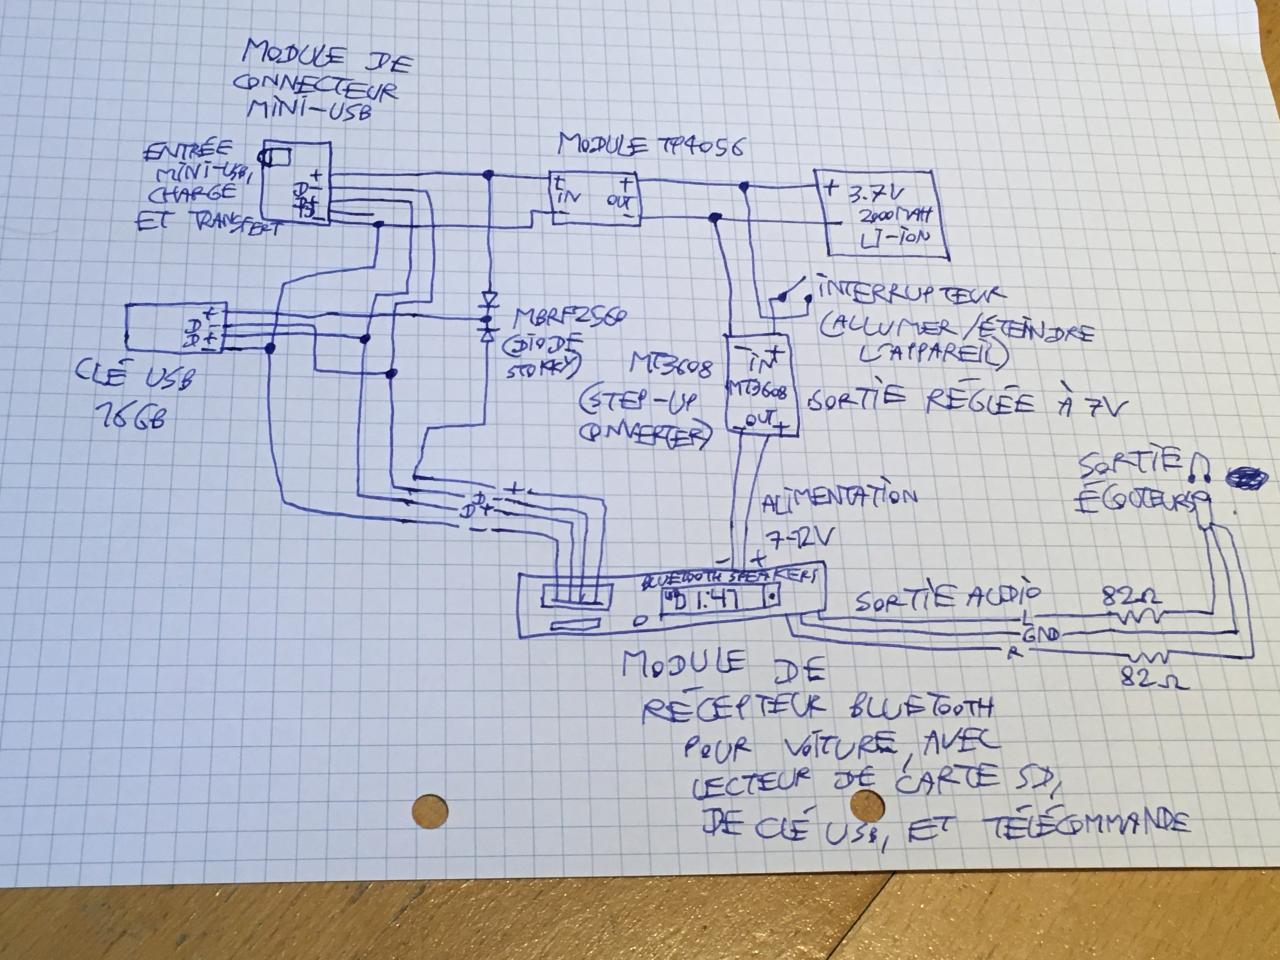 MODULE DE
CONNECTEUR
MINI-USB
ENTRÉE
MINI-USB,
CHARGE
ET TRANSFERT
+
D-
D+
-
MODULE TP4056
+ +
IN OUT
- -
+ 3.7V
- 2000MAH
LI-ION
INTERRUPTEUR
(ALLUMER/ÉTEINDRE
L'APPAREIL)
+
D-
D+
-
CLÉ USB
16GB
MBRF2560
(DIODE
STOKKY)
MT3608
(STEP-UP
CONVERTER)
- +
IN
MT3608
OUT
- +
SORTIE RÉGLÉE À 7V
SORTIE
ÉCOUTEURS
+
D-
D+
-
ALIMENTATION
7-12V
- +
BLUETOOTH SPEAKERS
1:47
SORTIE AUDIO
L
GND
R
82Ω
82Ω
MODULE DE
RÉCEPTEUR BLUETOOTH
POUR VOITURE, AVEC
LECTEUR DE CARTE SD,
DE CLÉ USB, ET TÉLÉCOMMANDE